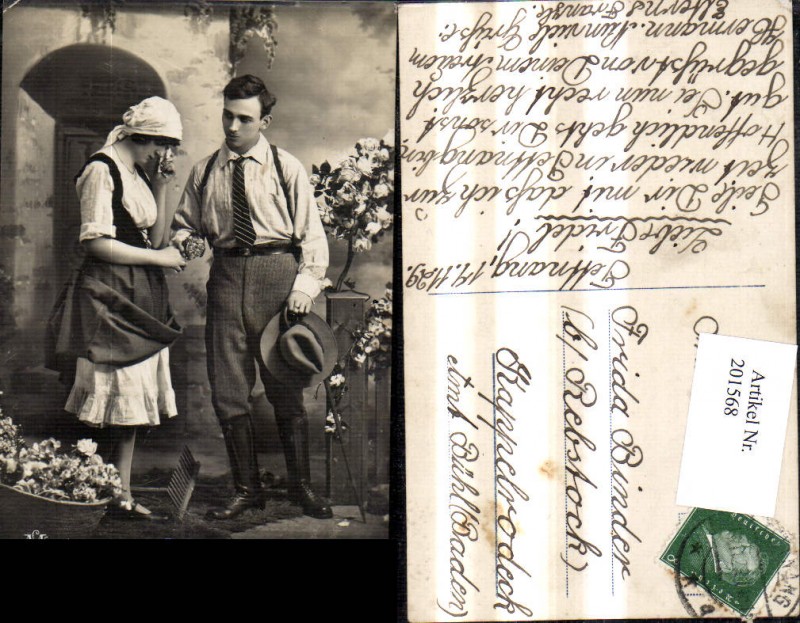 Tettnang, 14.11.29.
Liebe Fridel!
Teile Dir mit daß ich zur
zeit wieder in Tettnang bin,
Hoffendlich gehts Dir sonst
gut. Sei nun recht herzlich
gegrüßt von Deinem treuen
Hermann. Nun viele Grüße.
Elterns Franzl.
Frida Binder
(b/ Rebstock)
Kappelrodeck
Amt Bühl (Baden)
Artikel Nr.
201568
Deutsches